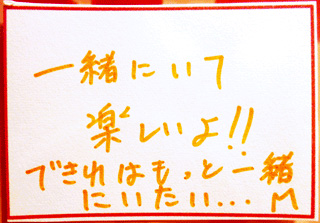 一緒にいて
楽しいよ!!
できればもっと一緒
にいたい... M